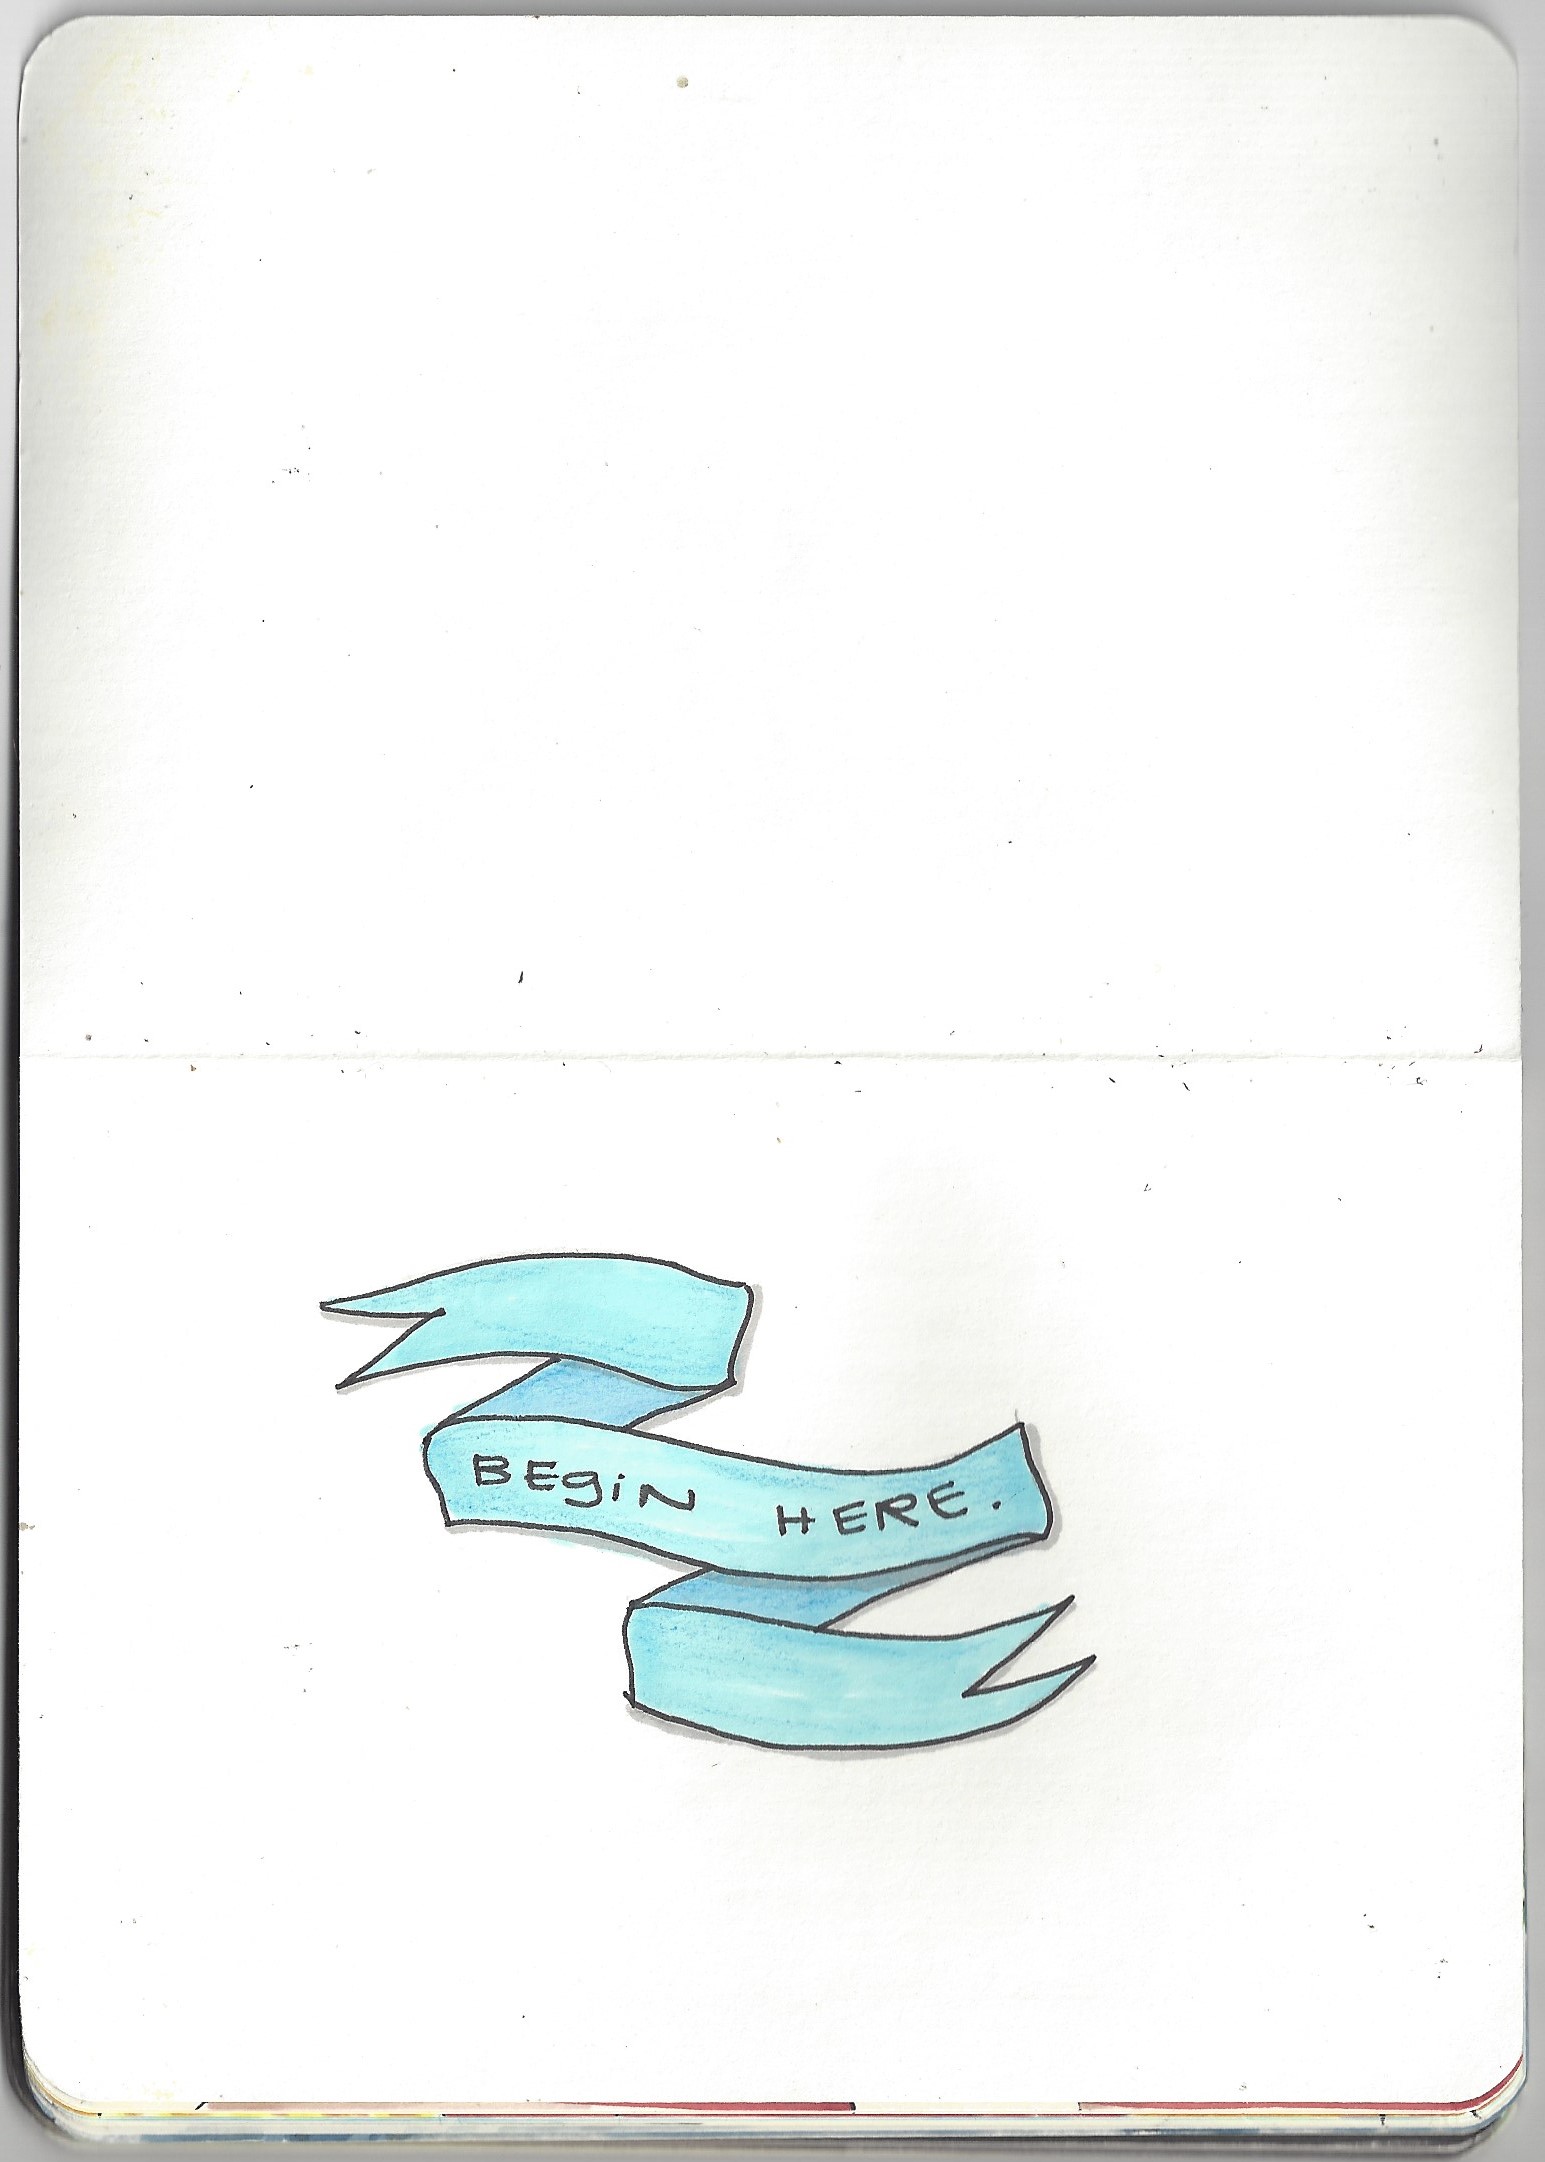 BEgiN HERE.